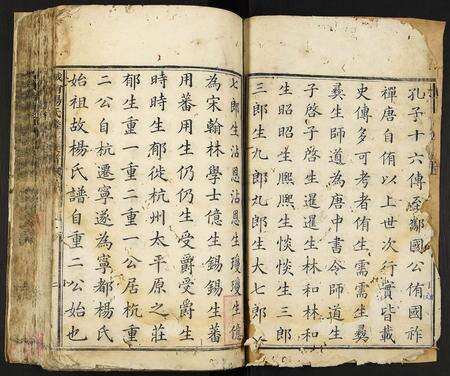 孔子十六傳鄒國公侑國祚
禪唐自侑以上世次行實皆載
史傳多可考者侑生需需生彝
彝生師道為唐中書令師道生
子啓子啓生暹暹生林和林和
生昭昭生熈熈生惔惔生三郎
三郎生九郎九郎生大七郎
七郎生沾恩生瓊瓊生億
為宋翰林學士億生錫錫生蕃
用蕃用生仍仍生受爵受爵生
時時生郁徙杭州太平原之莊
郁生重一重二重一公居杭重
二公自杭遷寧遂為寧都楊氏
始祖故楊氏譜自重二公始也
楊氏